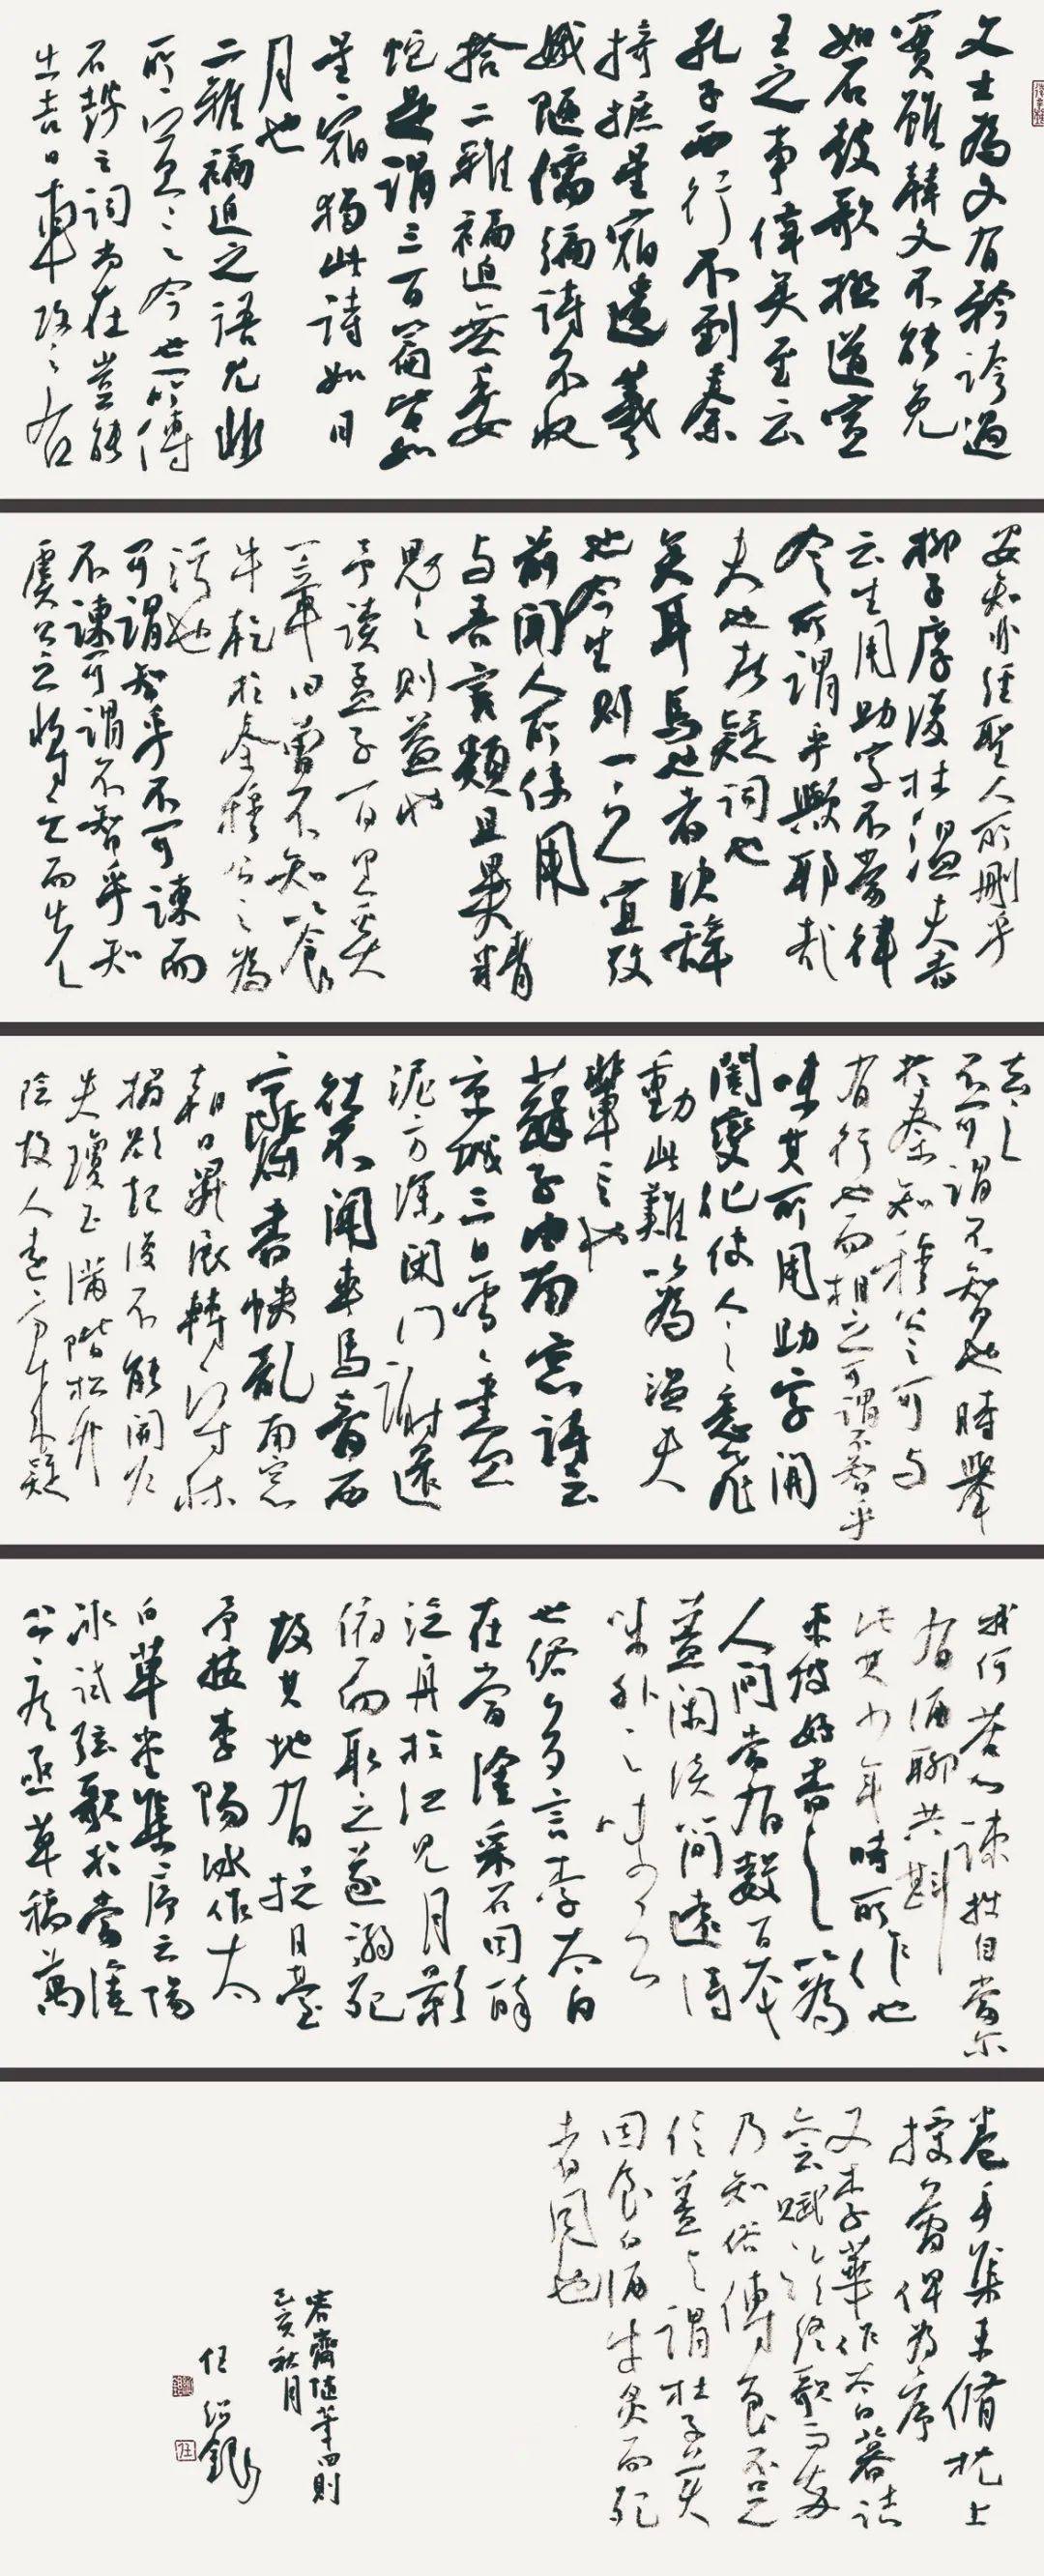 文士為文有矜誇過
實雖韓文不能免
如石鼓歌極道宣
王之事偉矣至云
孔子西行不到秦
掎摭星宿遺羲
娥陋儒編詩不收
拾二雅褊迫無委
蛇是謂三百篇皆如
星宿獨此詩如日
月也
二雅褊迫之語尤非
所宜言今世所傳
石鼓之詞尚在豈能
出吉日車攻之右
安知非經聖人所刪乎
柳子厚復杜溫夫書
云生用助字不當律
令所謂乎歟耶哉
夫也者疑詞也
矣耳焉也者決辭
也今生則一之宜考
前聞人所使用
与吾言類且異精
思之則益也
予讀孟子百里奚
一章曰曾不知以食
牛乾於秦穆公之為
污也
可謂智乎不可諫而
不諫可謂不智乎知
虞公之將亡而先
去之
不可謂不智也時舉
於秦知穆公之可与
有行也而相之可謂不智乎
味其所用助字開
闔變化使人之意飛
動此難以為溫夫
輩言也
蘇子由南窗詩云
京城三日雪雪盡
泥方深閉門謝還
往不聞車馬音西
齋書帙亂南窗
朝日昇展轉守床
榻欲起復不能開戶
失瓊玉滿階松竹
陰故人遠方來疑
我何苦心疎拙自當尔
有酒聊共斟
此其少年時所作也
東坡好書之以為
人間當有數百本
蓋閑淡簡遠得
味外之味云
世俗多言李太白
在當塗采石因醉
泛舟於江見月影
俯而取之遂溺死
故其地有捉月臺
予按李陽冰作太
白草堂集序云陽
冰試弦歌於當塗
公疾亟草稿萬
卷手集未脩枕上
授簡俾為序
又李華作太白墓誌
亦云賦臨終歌而卒
乃知俗傳良不足
信蓋与謂杜子美
因食白酒牛炙而死
者同也
容齋隨筆四則
己亥秋月
任紹